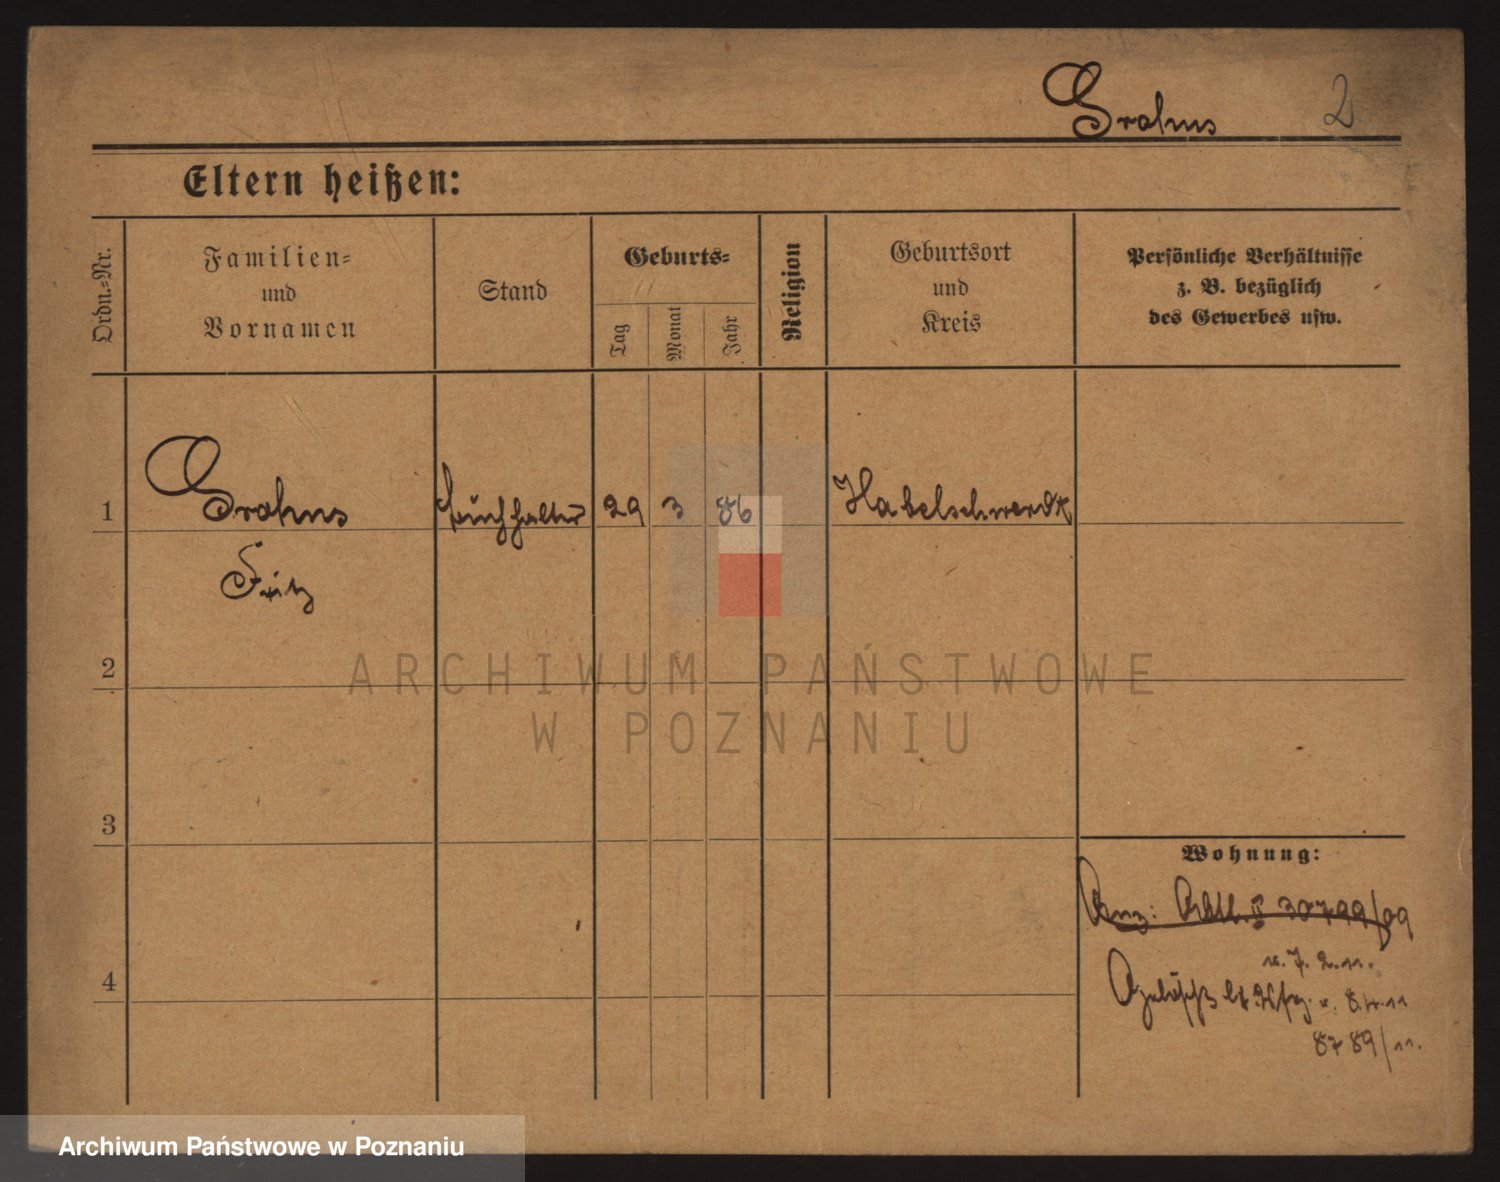 Grahns 2
Eltern heißen:
Ordn.-Nr.
Familien-
und
Vornamen
Stand
Geburts-
Tag
Monat
Jahr
Religion
Geburtsort
und
Kreis
Persönliche Verhältnisse
z. B. bezüglich
des Gewerbes usw.
1 Grahns Buchhalter 29 3 86 Habelschwerdt
Fritz
2
3
4
Wohnung:
30799/09
v. 7. 2. 11.
Gelöscht lt. Vfg. v. 8. 4. 11
8789/11.
ARCHIWUM PAŃSTWOWE
W POZNANIU
Archiwum Państwowe w Poznaniu